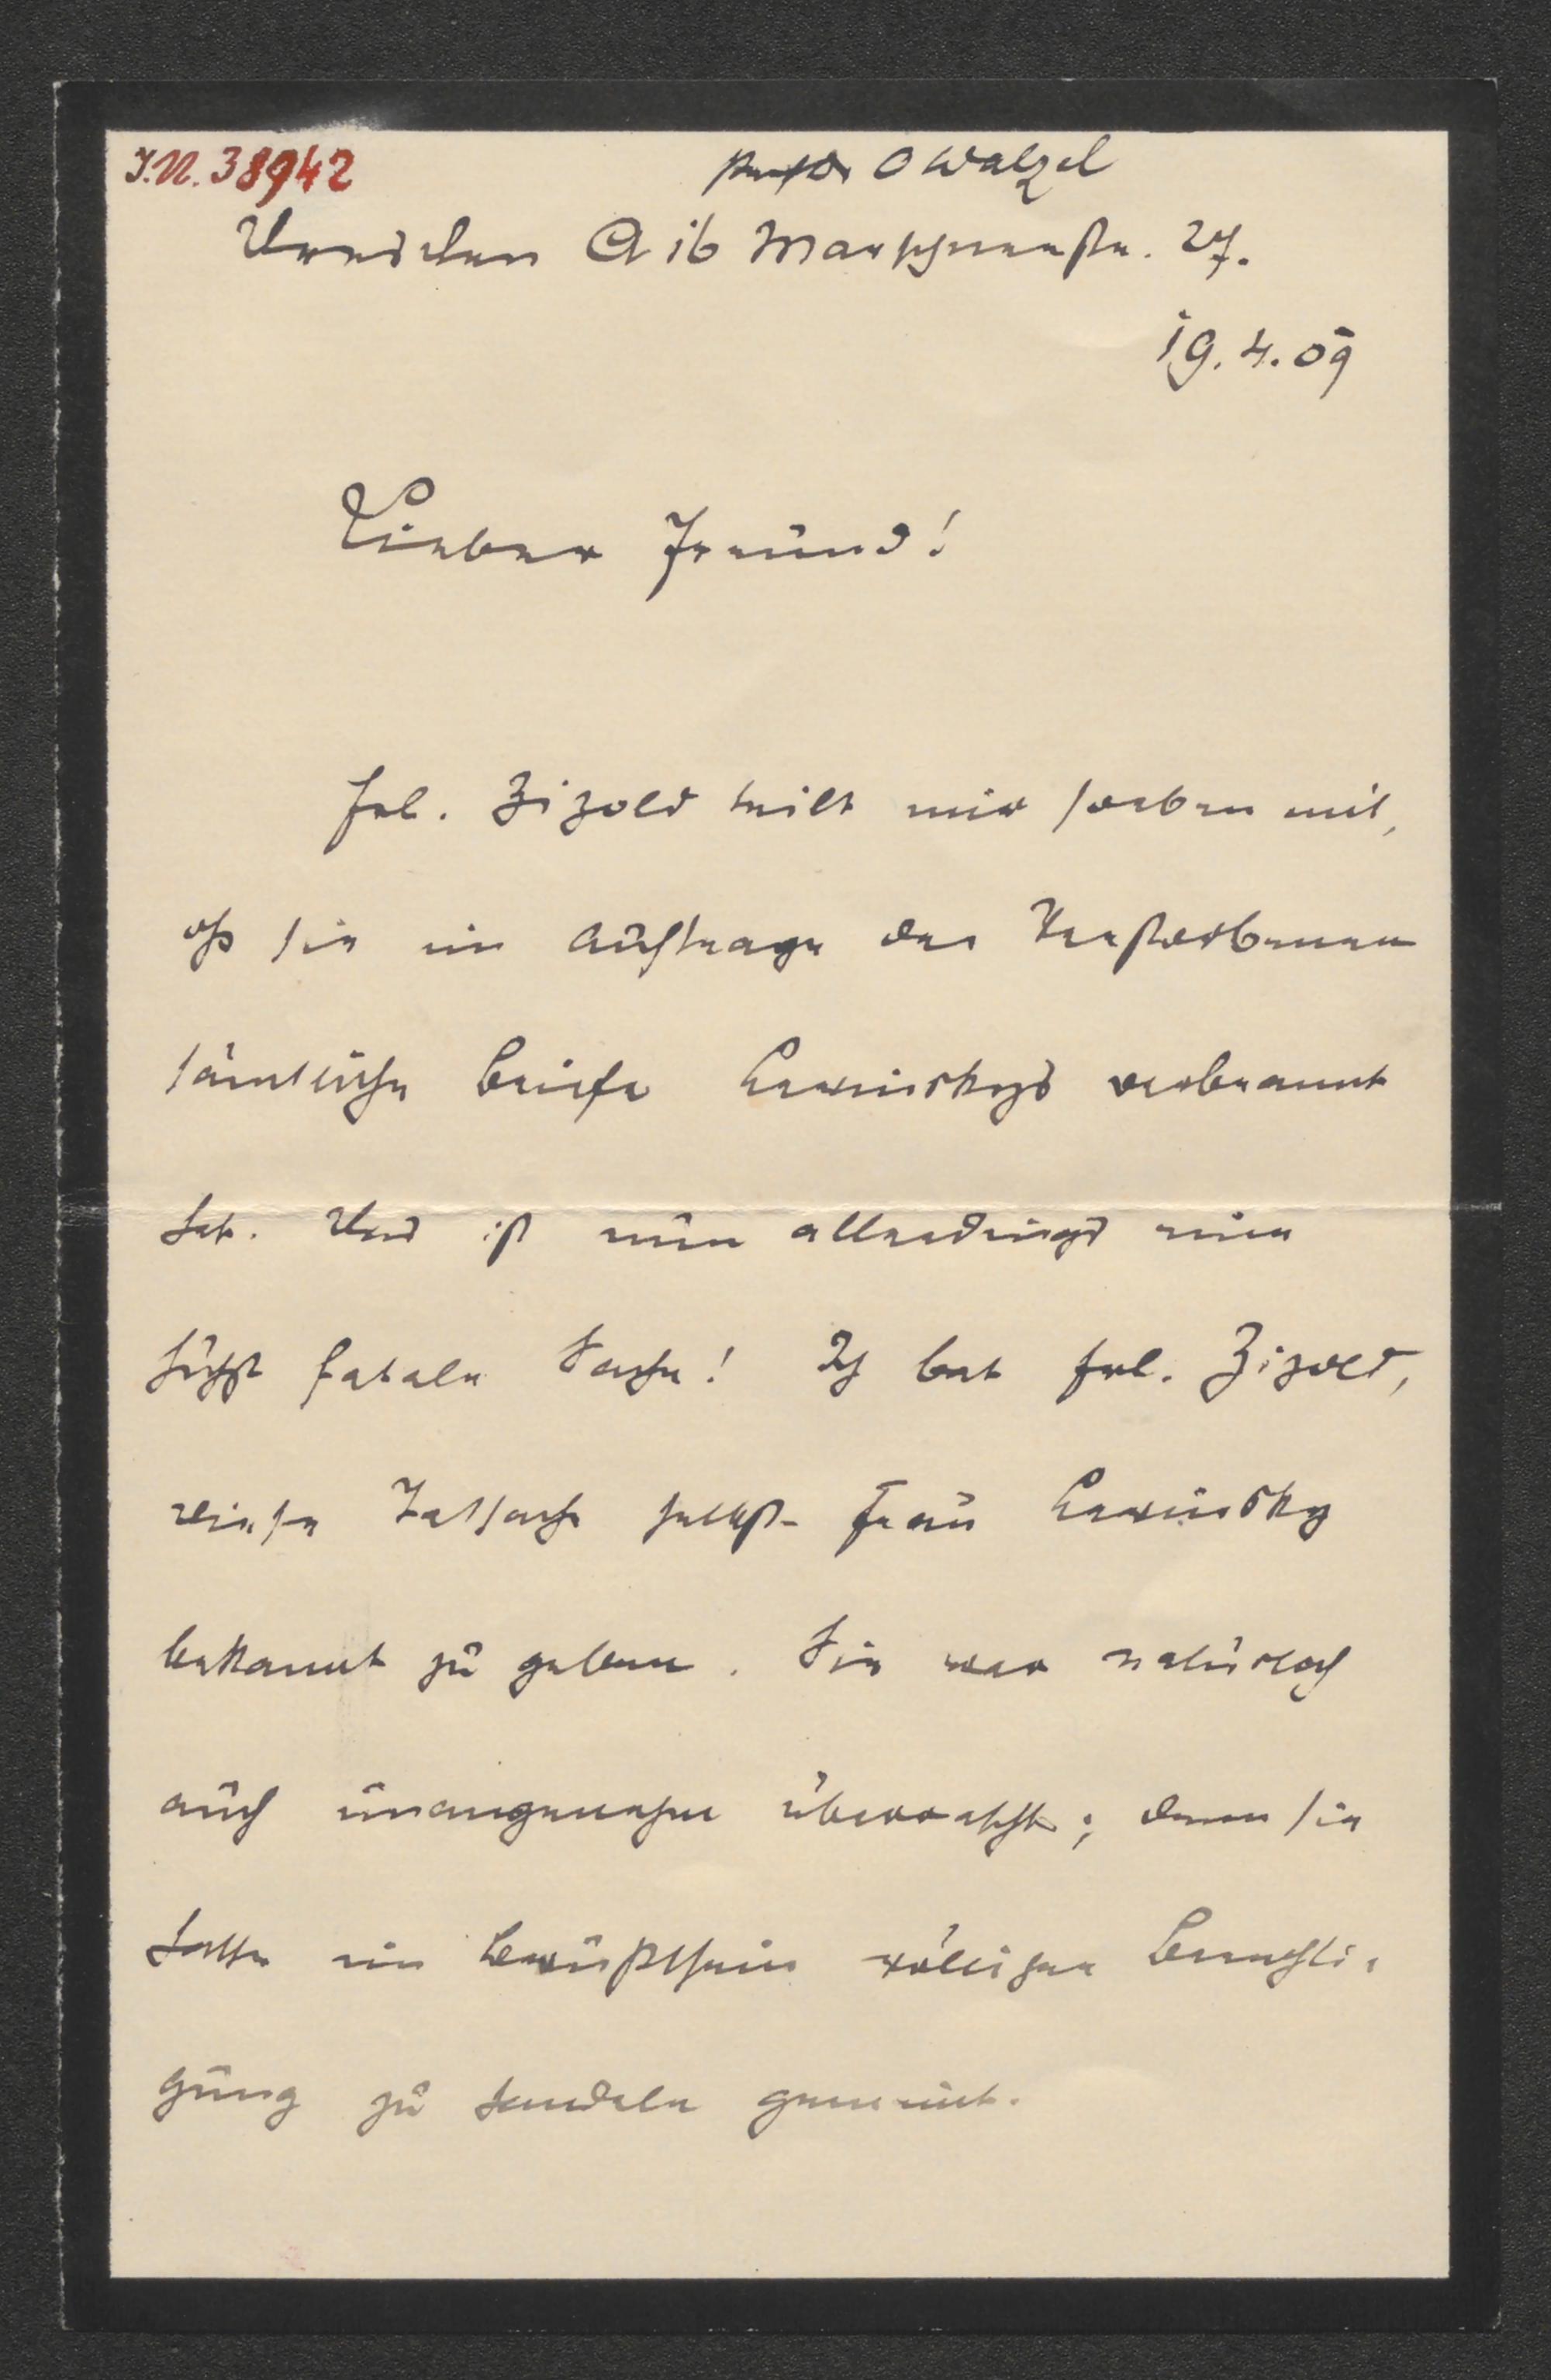 I.N. 38942
Prof Dr O Walzel
Dresden A 16 Marschnerstr. 27.
19.4.09
Lieber Freund!
Frl. Zizold teilt mir soeben mit,
dß sie im Auftrage der Verstorbenen
sämtliche Briefe Lewinskys verbrannt
hat. Das ist nun allerdings eine
höchst fatale Sache! Ich bat Frl. Zizold,
diese Tatsache selbst Frau Lewinsky
bekannt zu geben. Sie war natürlich
auch unangenehm überrascht; denn sie
hatte im Bewußtsein völliger Berechti-
gung zu handeln gemeint.